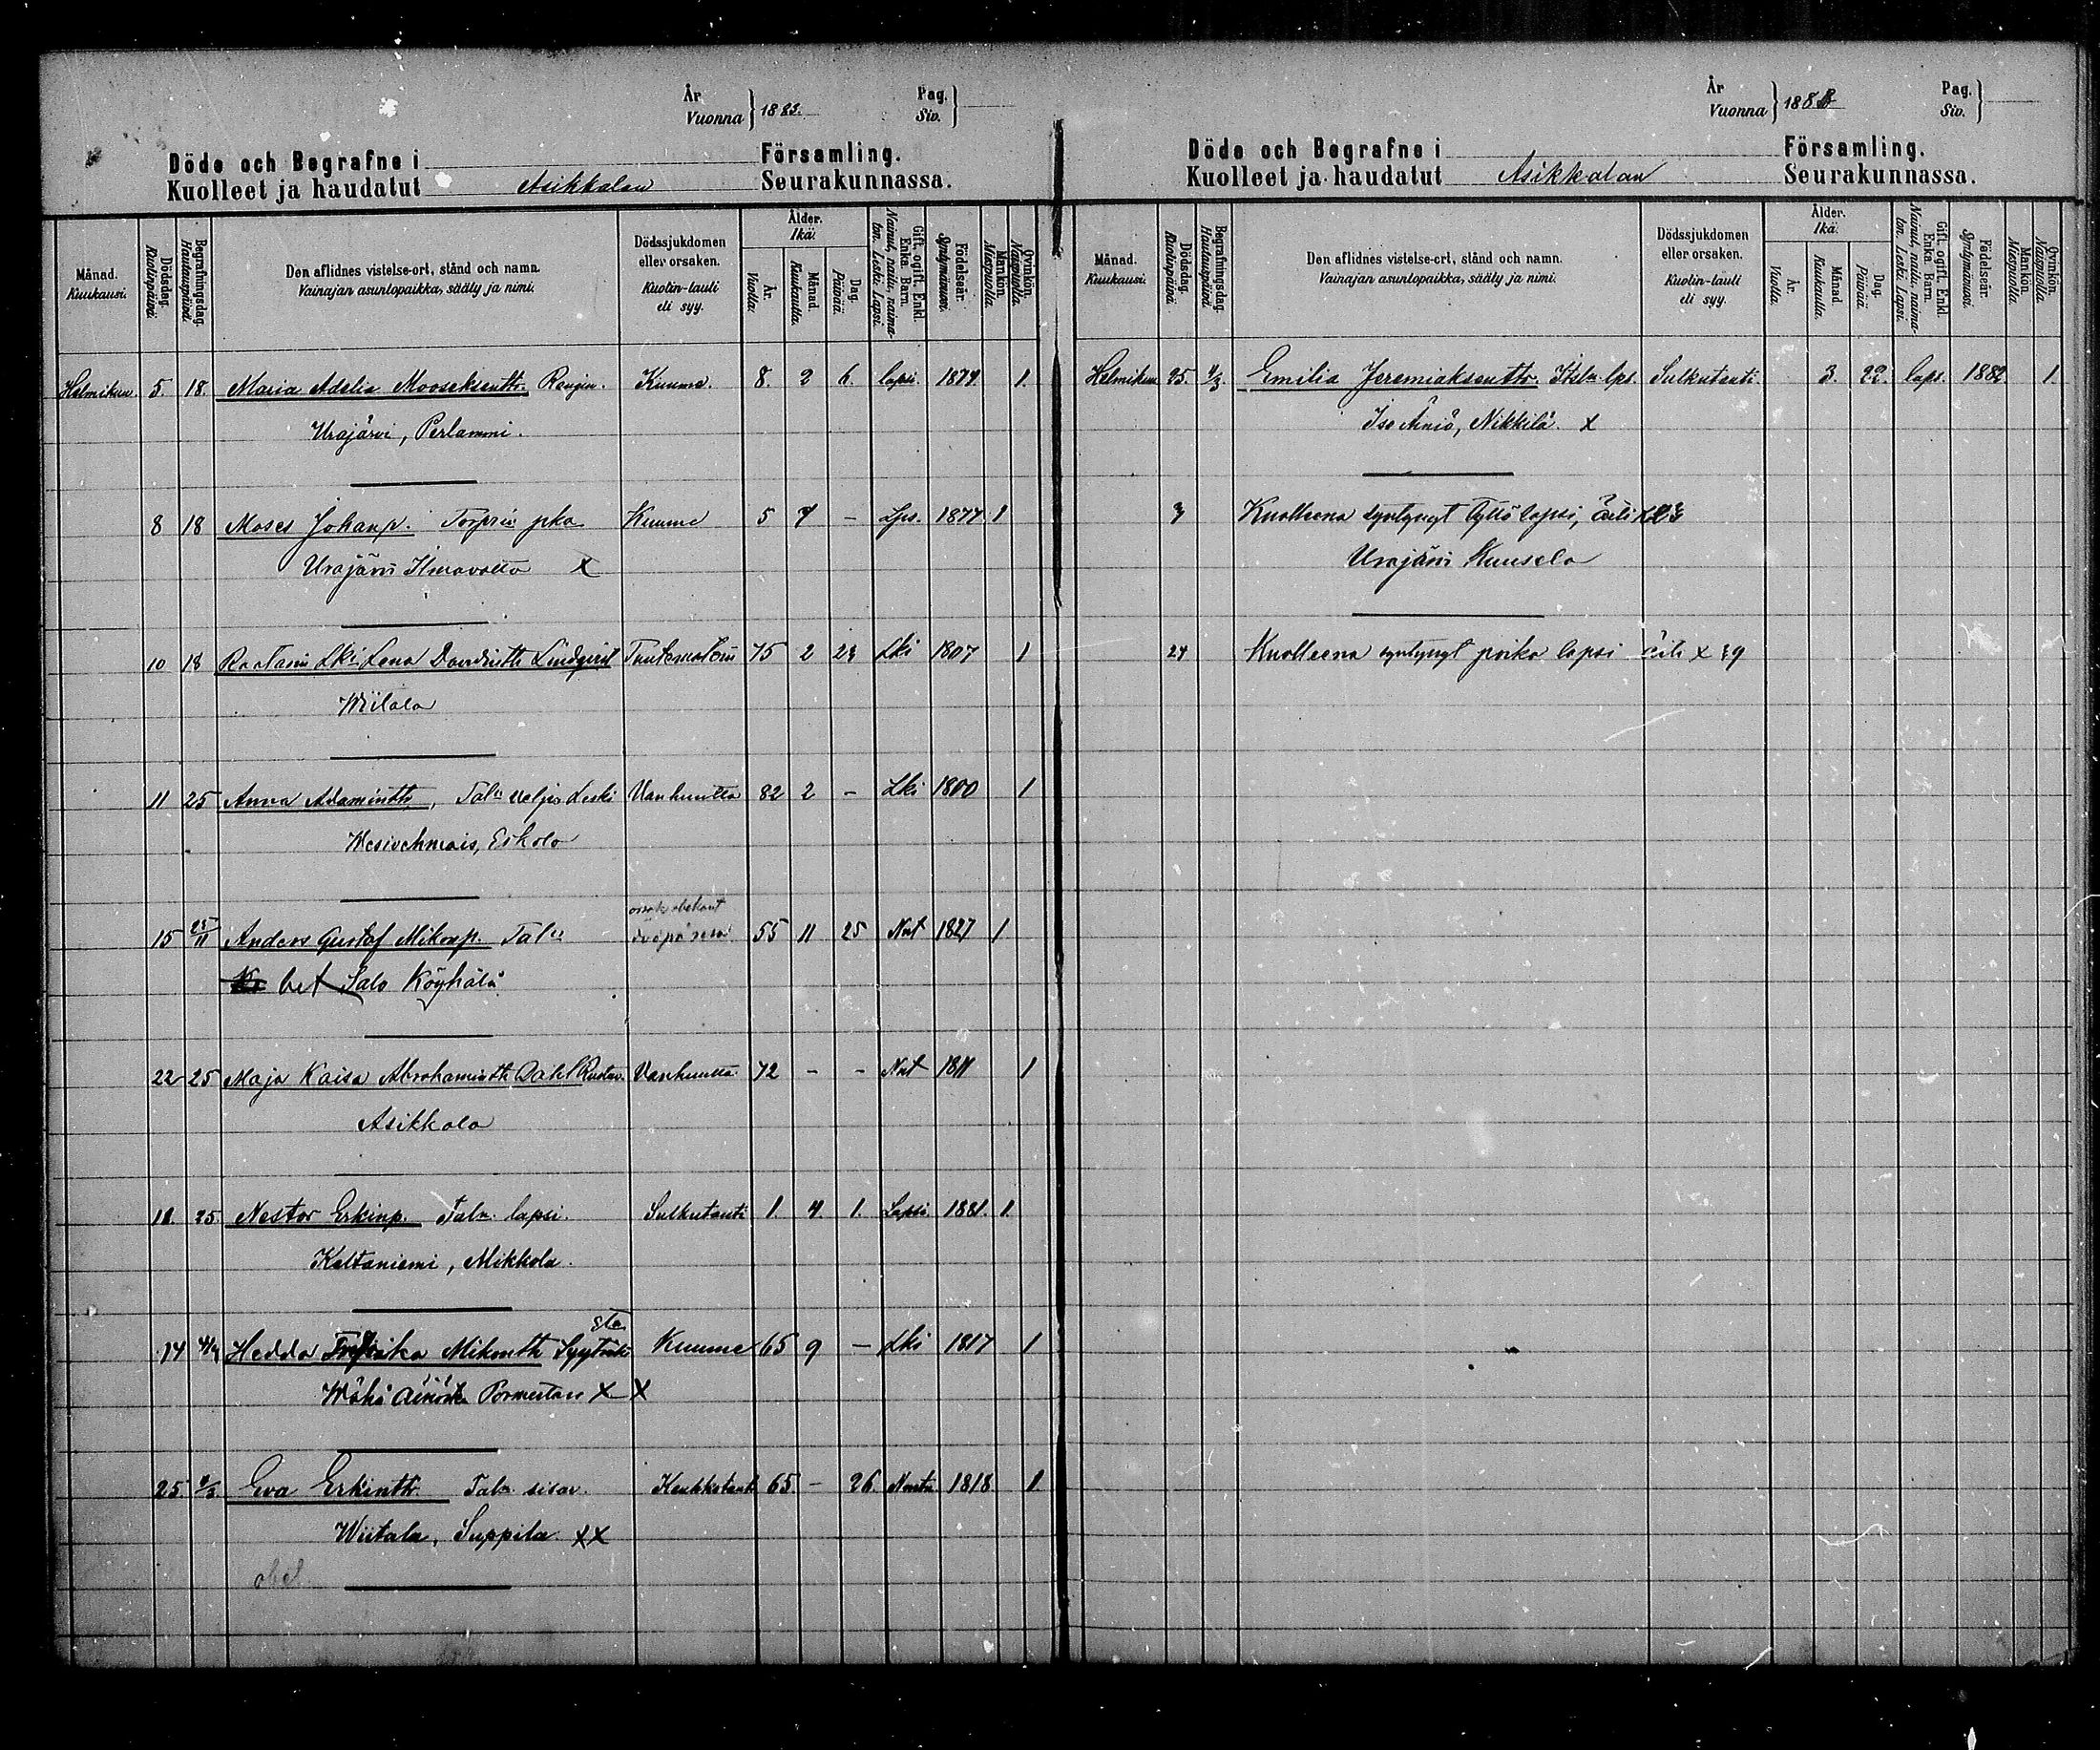 År
Vuonna } 1883.
Pag.
Siv. }
Döde och Begrafne i Församling.
Kuolleet ja haudatut Asikkalan Seurakunnassa.
Månad. Kuukausi.
Dödsdag. Kuolinpäivä.
Begrafningsdag. Hautauspäivä.
Den aflidnes vistelse-ort, stånd och namn.
Vainajan asuntopaikka, sääty ja nimi.
Dödssjukdomen eller orsaken.
Kuolin-tauti eli syy.
Ålder. Ikä.
År. Vuotta.
Månad. Kuukautta.
Dag. Päivää.
Gift, ogift. Enkl. Enka. Barn.
Nainut, naitu, naimaton. Leski. Lapsi.
Födelseår. Syntymävuosi.
Mankön. Miespuolia.
Qvinkön. Naispuolia.
Helmikuu 5. 18. Maria Adelia Mooseksentr. Kuume. 8. 2 6. lapsi. 1874. 1.
Urajärvi, Perlammi.
8 18 Moses Johanp. Torprin pka Kuume 5 7 - Lps. 1877 1
Urajärvi Ilmavatta X
10 18 Lki Lena Davidintr Lindqvist 75 2 23 Lki 1807 1
Wiitala
11 25 Anna Adamintr, Tal: veljes Leski Vanhuutta 82 2 - Lki 1800 1
Wesivehmais, Eskola
15 25/11 Anders Gustaf Mikonp. Tal: 55 11 25 Nat 1827 1
bet Salo Köyhälä
22 25 Maja Kaisa Abrahamintr Dahl Vanhuutta 72 - - Nat 1811 1
Asikkala
18. 25. Nestor Erkinp. Taln. lapsi. Sulkutauti 1. 4. 1. Lapsi 1881. 1.
Kaltaniemi, Mikkola.
14 4/4 Hedda Mikontr Kuume 65 9 - Lki 1817 1
Wähä Pormestari X X
25. 4/3. Eva Erkintr. Taln sisar. Keuhkotauti 65 - 26 1818 1.
Wiitala, Suppila. XX
obel.
År
Vuonna } 1883
Pag.
Siv. }
Döde och Begrafne i Församling.
Kuolleet ja haudatut Asikkalan Seurakunnassa.
Månad. Kuukausi.
Dödsdag. Kuolinpäivä.
Begrafningsdag. Hautauspäivä.
Den aflidnes vistelse-ort, stånd och namn.
Vainajan asuntopaikka, sääty ja nimi.
Dödssjukdomen eller orsaken.
Kuolin-tauti eli syy.
Ålder. Ikä.
År. Vuotta.
Månad. Kuukautta.
Dag. Päivää.
Gift, ogift. Enkl. Enka. Barn.
Nainut, naitu, naimaton. Leski. Lapsi.
Födelseår. Syntymävuosi.
Mankön. Miespuolia.
Qvinkön. Naispuolia.
Helmikuu 25. 4/3 Emilia Jeremiaksentr. Itseln lps. Sulkutauti 3. 22. laps. 1882 1.
Iso Äiniö, Nikkilä. X
3 Kuolleena syntynyt tyttö lapsi, äiti
Urajärvi Kuusela
24 Kuolleena syntynyt poika lapsi äiti X 39